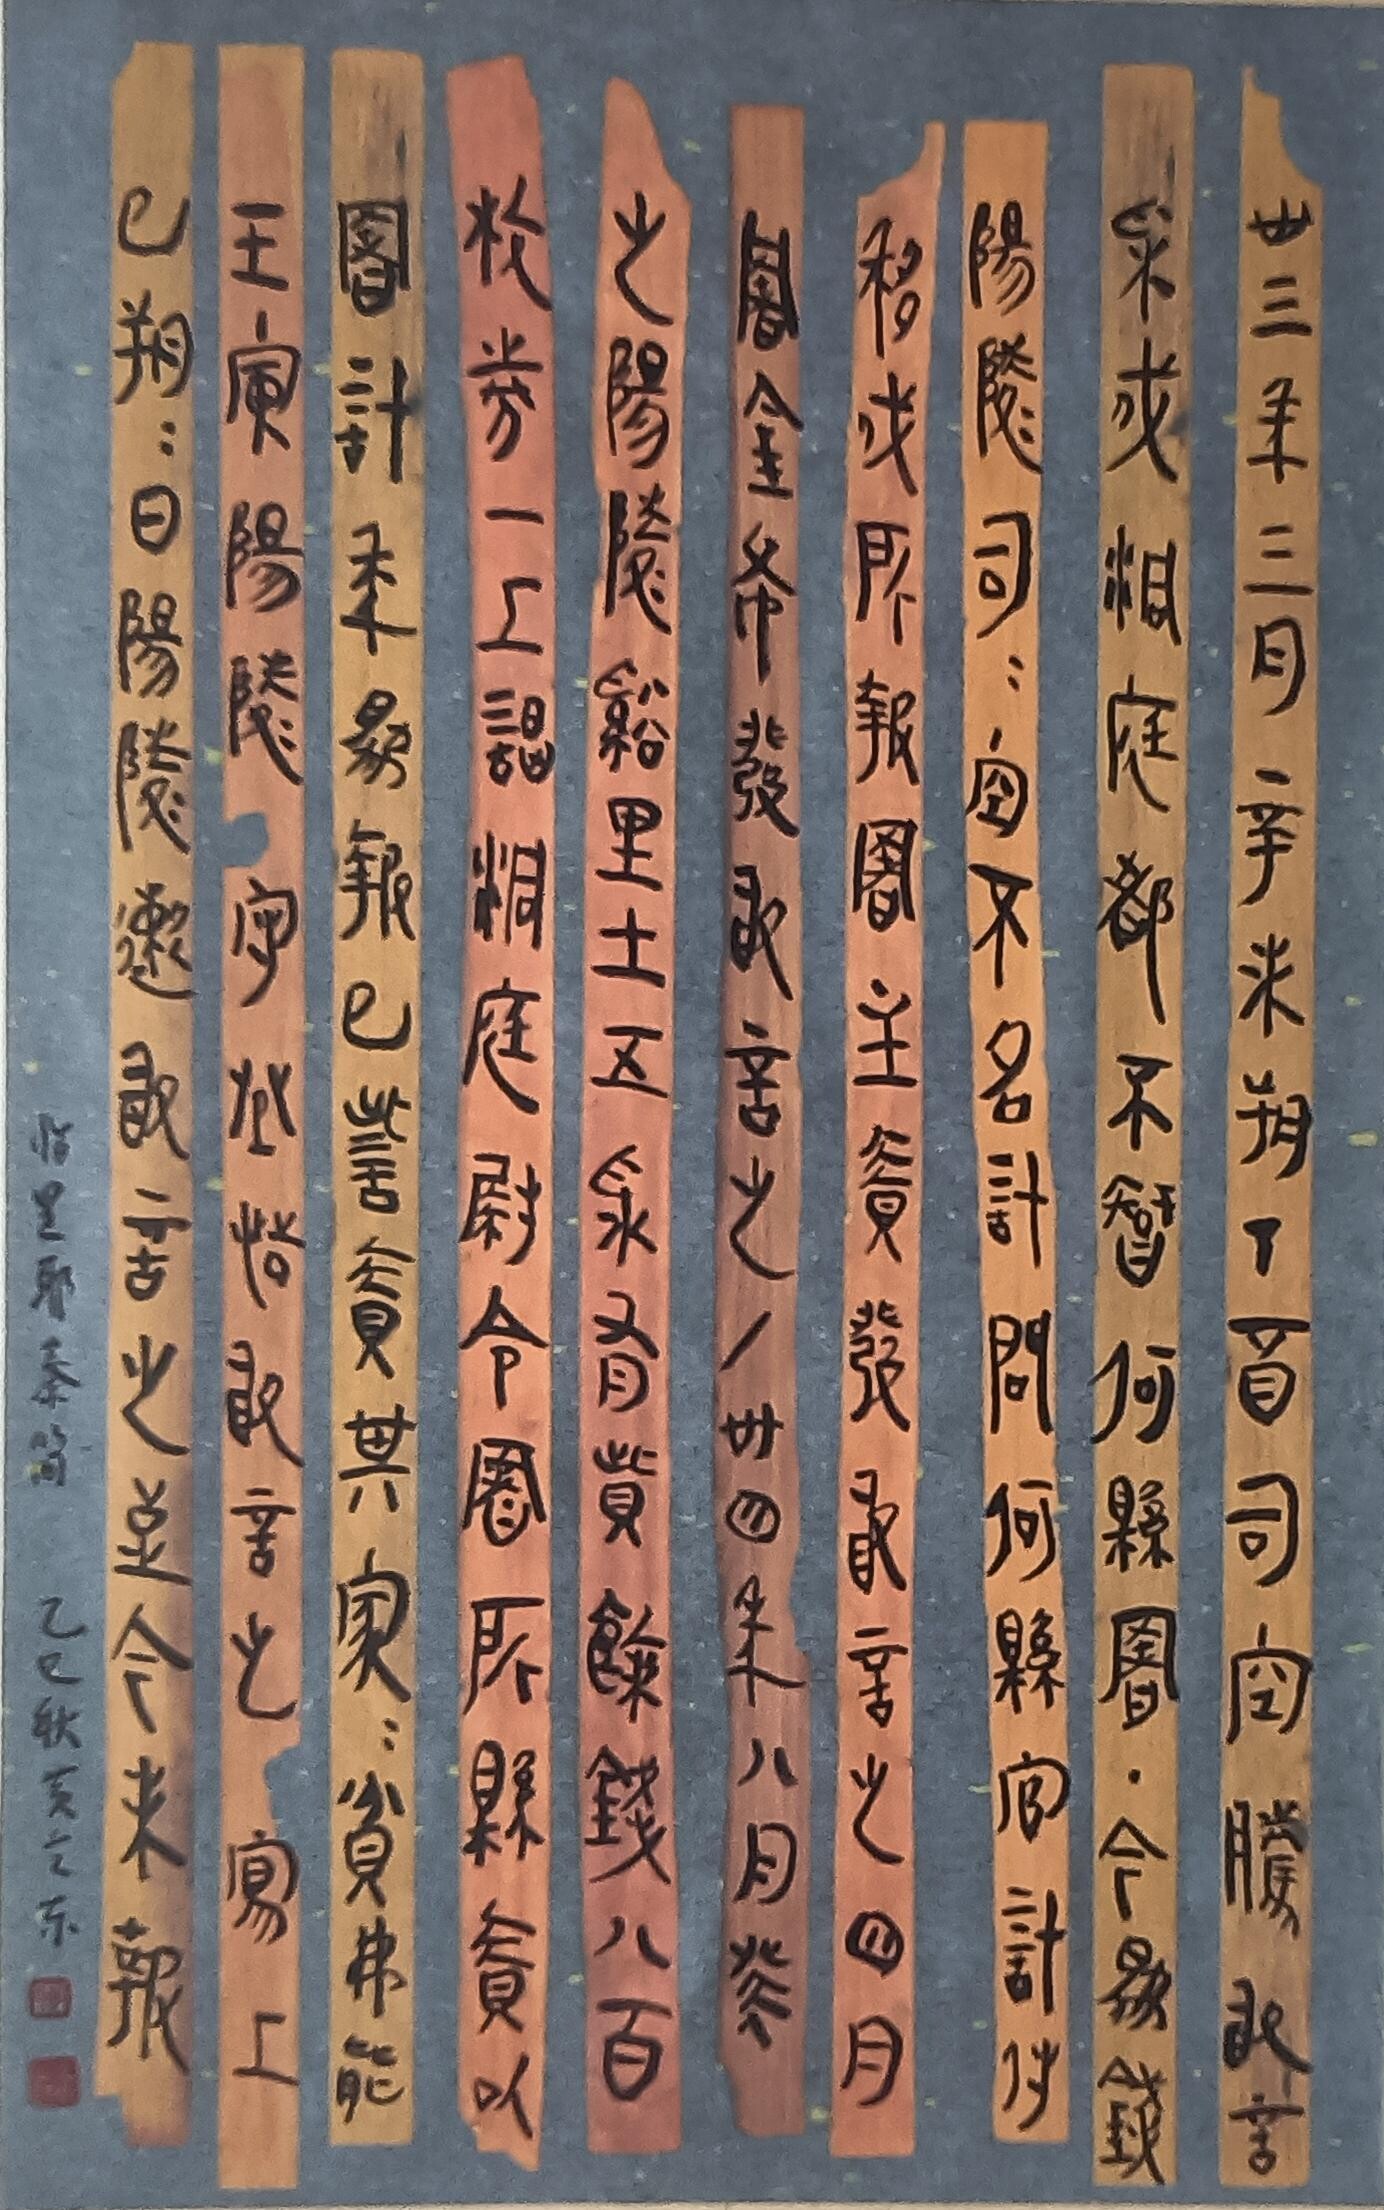 卅三年三月辛未朔丁酉司空騰敢言
采戍洞庭郡不智何縣署·今為錢
陽陵司：空不名計問何縣官計付
移戍所報署主責發敢言之四月
署金布發敢言之/卅四年八月癸
之陽陵谿里士五采有貲餘錢八百
校券一上謁洞庭尉令署所縣責以
署計年為報已訾責其家：貧弗能
壬寅陽陵守丞恬敢言之寫上
巳朔：日陽陵遬敢言之至今未報
临里耶秦简 乙巳秋